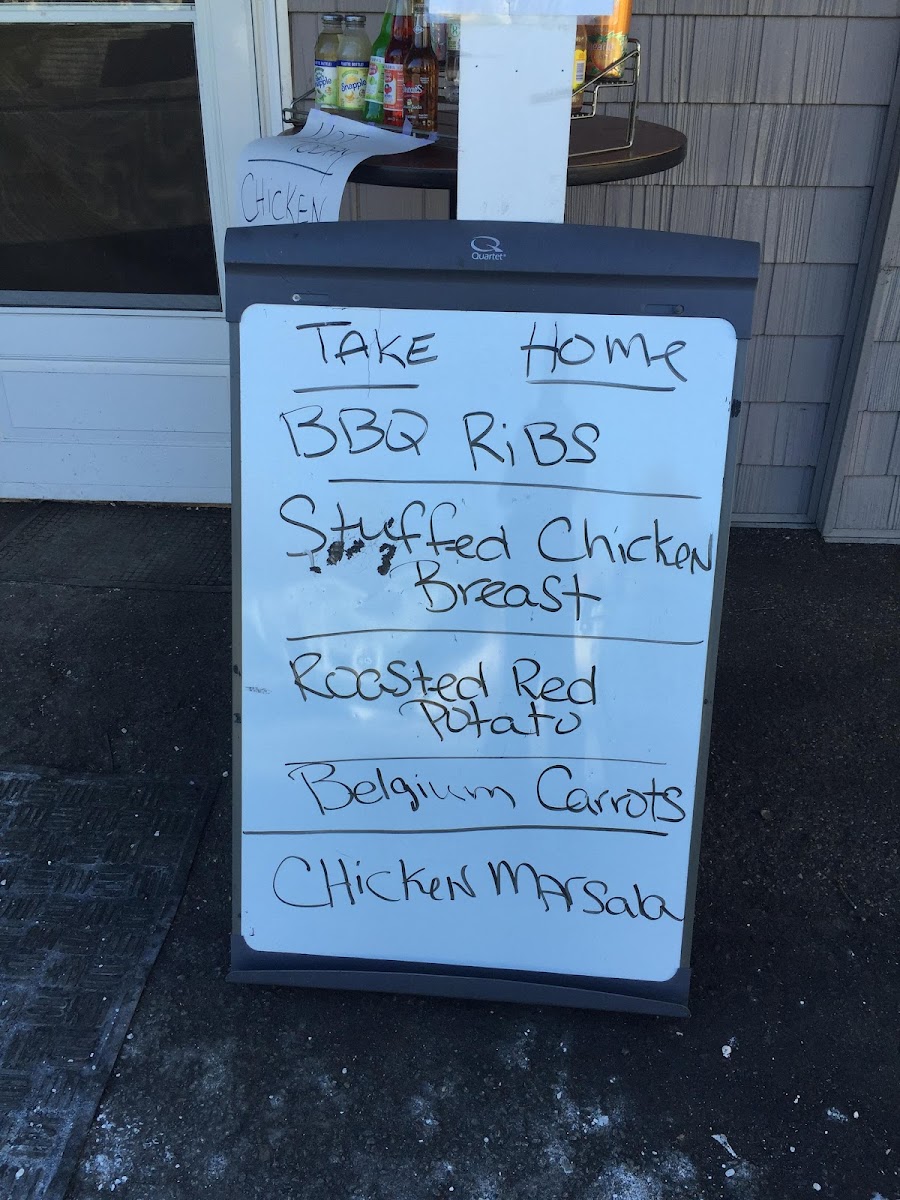 Snapple
Snapple
HOT
TODAY
CHICKEN
Quartet
TAKE HOME
BBQ RiBS
Stuffed Chicken
Breast
Roasted Red
Potato
Belgium Carrots
CHicKeN MArsala